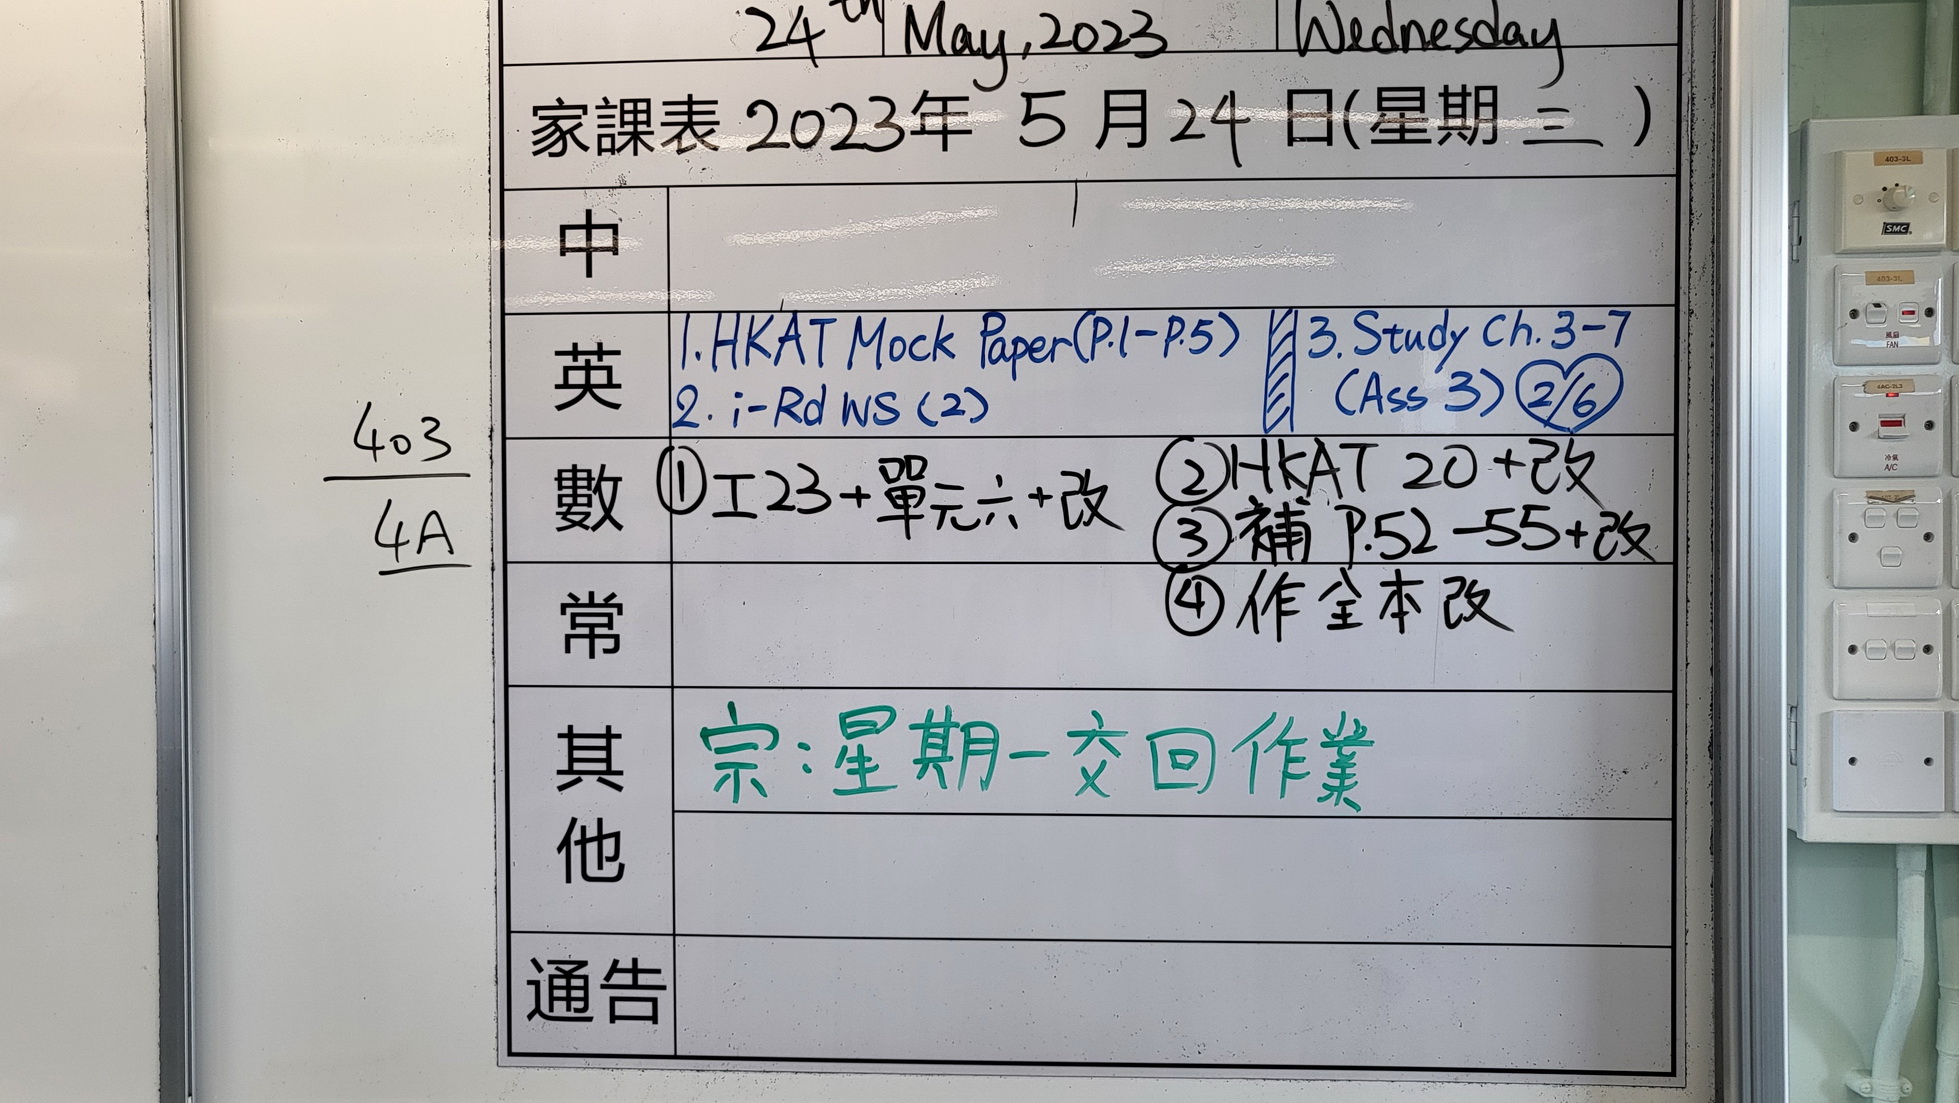 24th May, 2023 Wednesday
家課表 2023年 5月24日(星期三)
中
英
1. HKAT Mock Paper (P.1-P.5)
2. i-Rd WS (2)
3. Study Ch. 3-7
(Ass 3) 2/6
數
① 工23+單元六+改
② HKAT 20+改
③ 補 P.52-55+改
④ 作全本改
常
其他
宗:星期一交回作業
通告
403
4A
403-3L
SMC
403-3L
風扇
FAN
冷氣
A/C